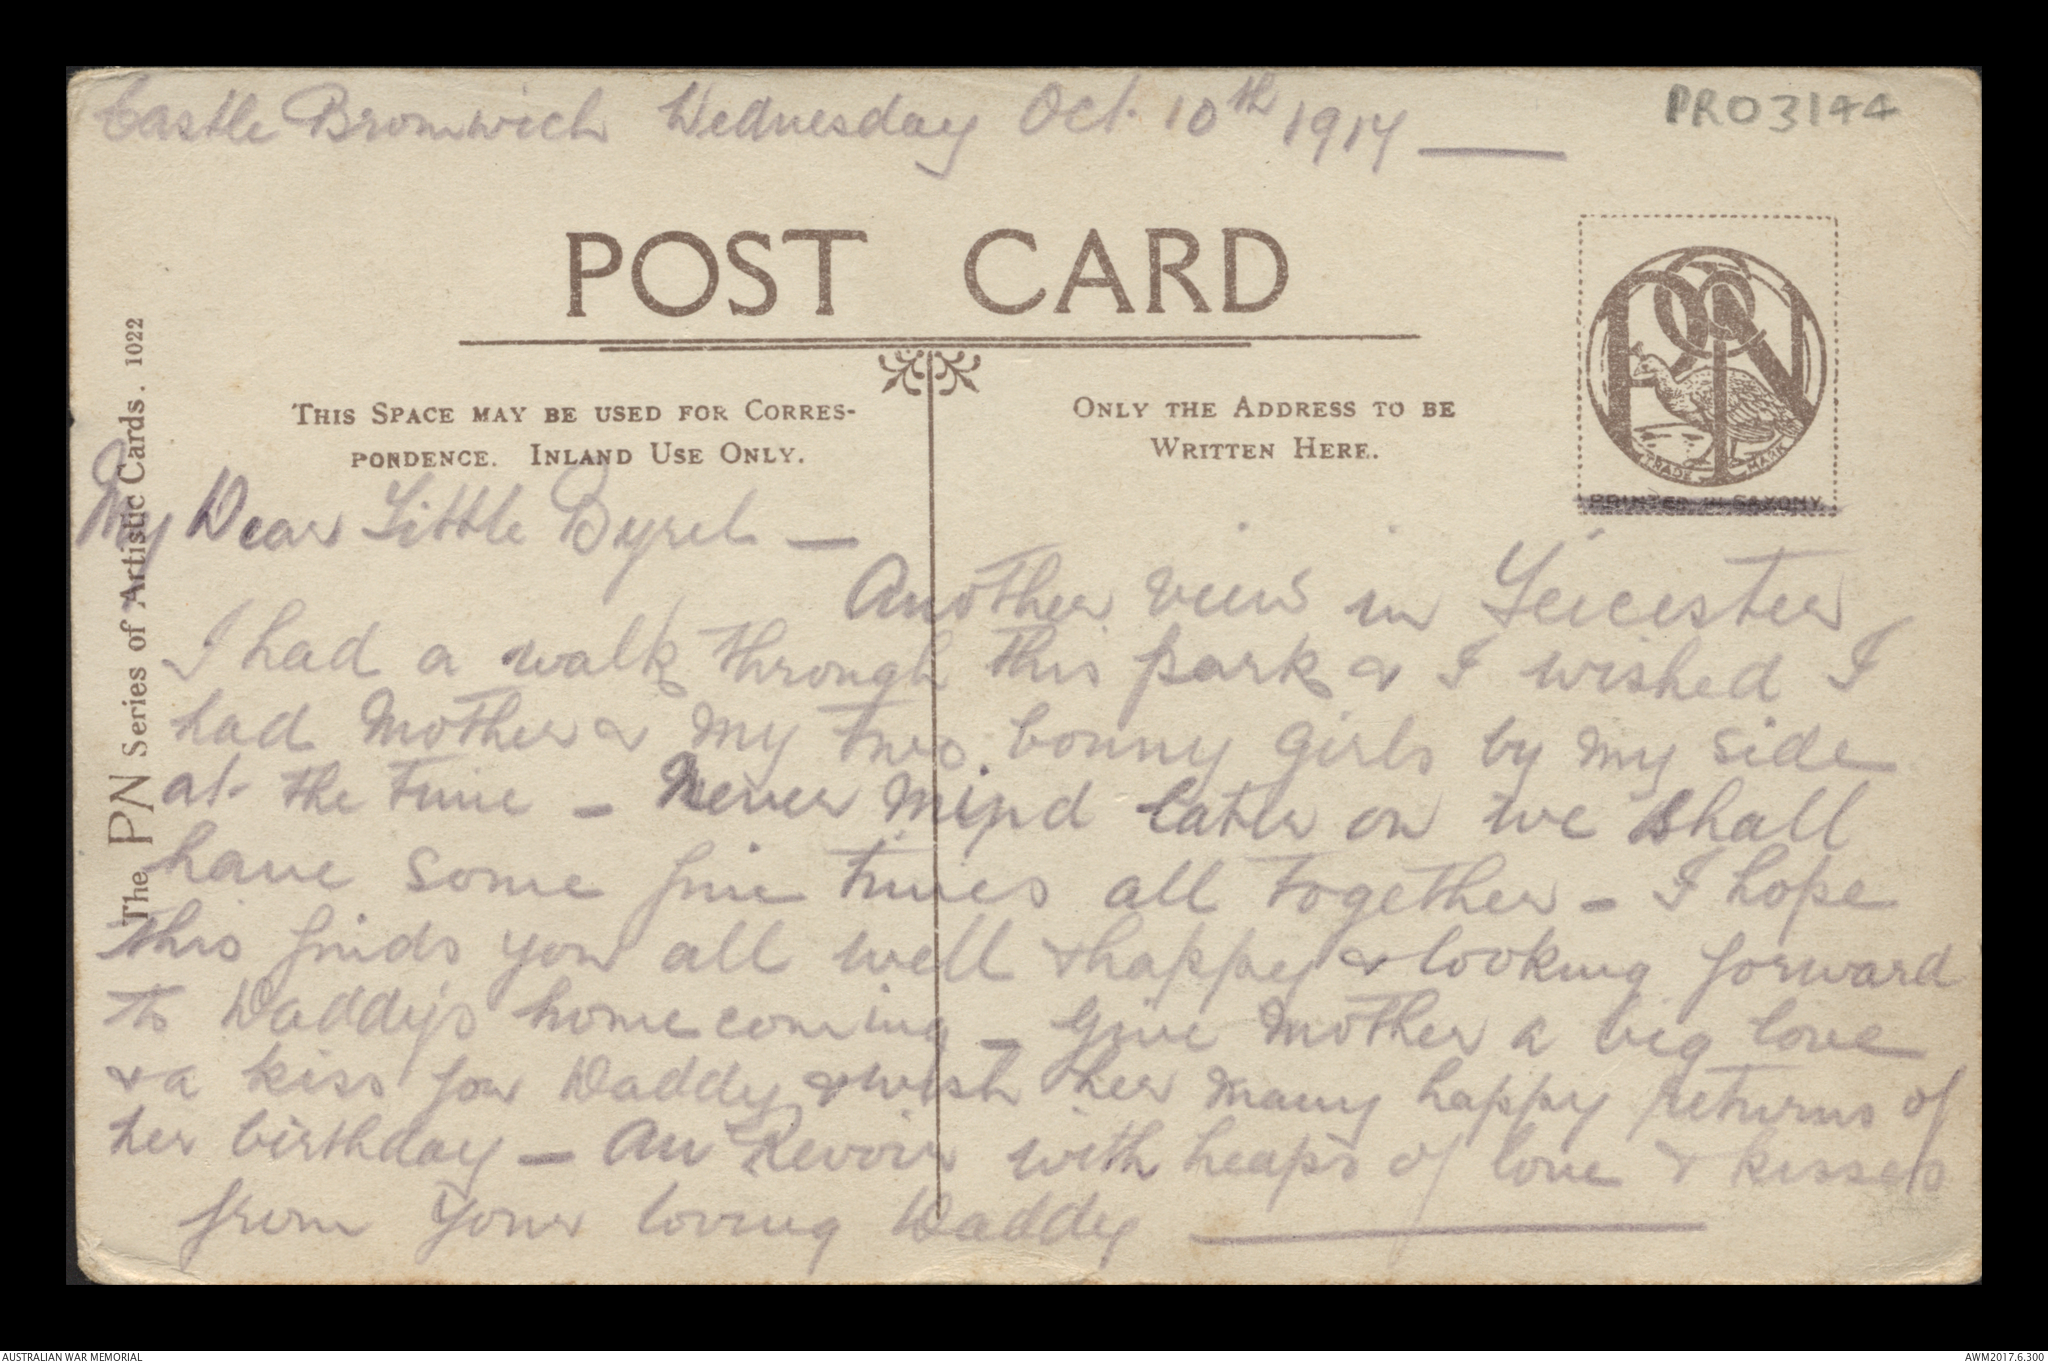 Castle Bromwich Wednesday Oct. 10th 1917
PR03144
POST CARD
THIS SPACE MAY BE USED FOR CORRES-
PONDENCE. INLAND USE ONLY.
ONLY THE ADDRESS TO BE
WRITTEN HERE.
PN
TRADE MARK
PRINTED IN SAXONY
The PN Series of Artistic Cards. 1022
My Dear Little Byrel —
Another view in Leicester
I had a walk through this park & I wished I
had Mother & my two bonny girls by my side
at the time – Never Mind later on we shall
have some fine times all together – I hope
this finds you all well & happy & looking forward
to Daddy's homecoming – Give Mother a big love
& a kiss for Daddy & wish her many happy returns of
her birthday – Au Revoir with heaps of love & kisses
from Your loving Daddy
AUSTRALIAN WAR MEMORIAL
AWM2017.6.300